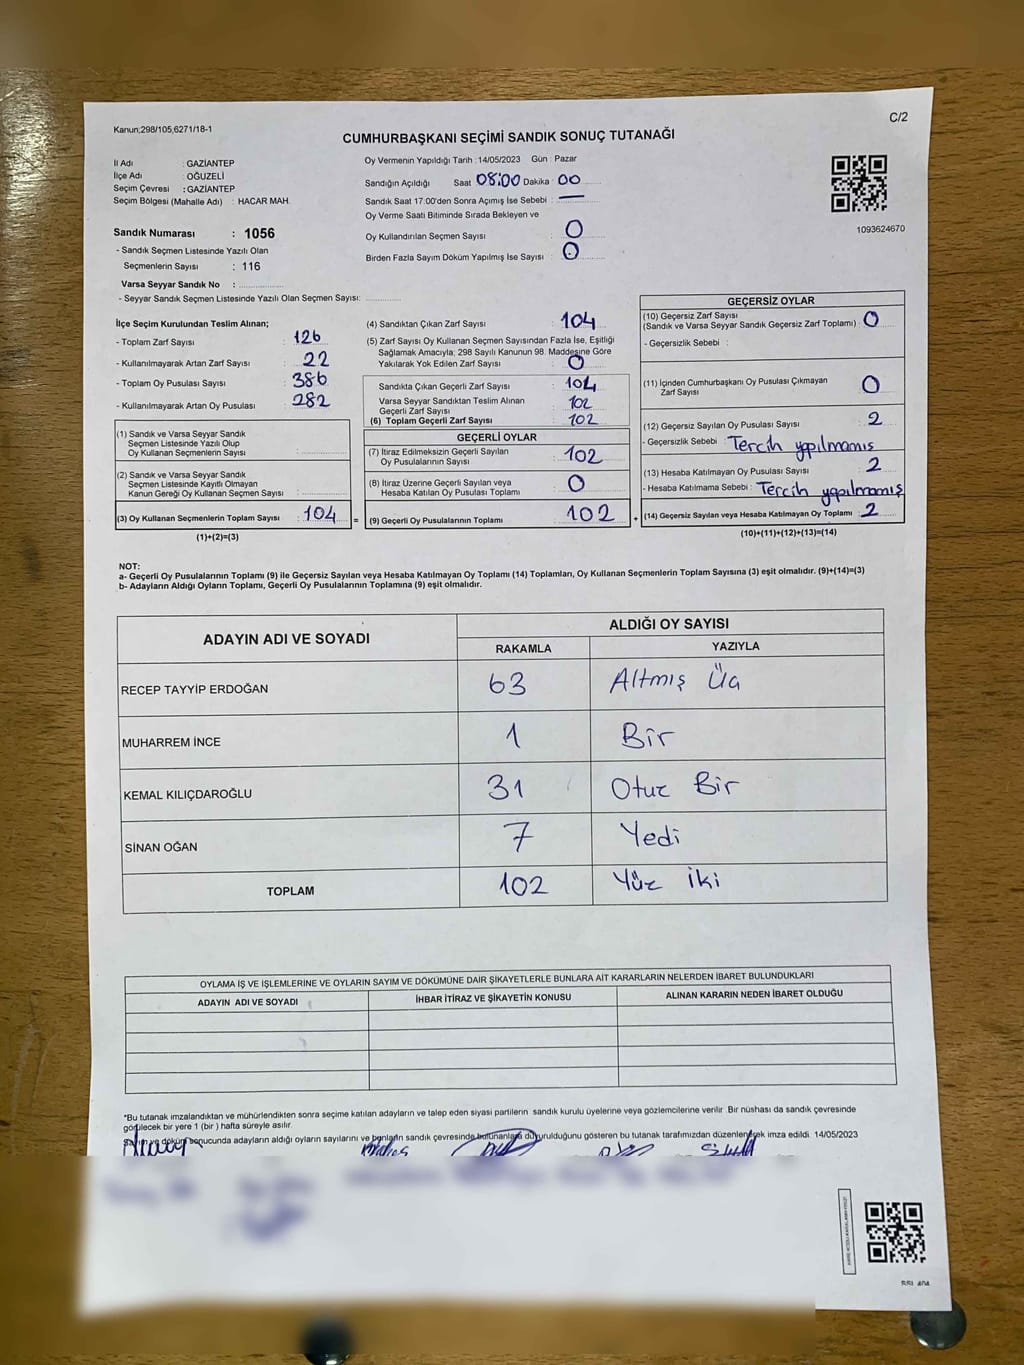 Kanun;298/105,6271/18-1
C/2
CUMHURBAŞKANI SEÇİMİ SANDIK SONUÇ TUTANAĞI
İl Adı : GAZİANTEP
İlçe Adı : OĞUZELİ
Seçim Çevresi : GAZİANTEP
Seçim Bölgesi (Mahalle Adı) : HACAR MAH.
Sandık Numarası : 1056
- Sandık Seçmen Listesinde Yazılı Olan
Seçmenlerin Sayısı : 116
Varsa Seyyar Sandık No :
- Seyyar Sandık Seçmen Listesinde Yazılı Olan Seçmen Sayısı:
Oy Vermenin Yapıldığı Tarih :14/05/2023 Gün : Pazar
Sandığın Açıldığı Saat 08:00 Dakika : 00
Sandık Saat 17.00'den Sonra Açımış İse Sebebi : —
Oy Verme Saati Bitiminde Sırada Bekleyen ve
Oy Kullandırılan Seçmen Sayısı : 0
Birden Fazla Sayım Döküm Yapılmış İse Sayısı : 0
1093624670
İlçe Seçim Kurulundan Teslim Alınan;
- Toplam Zarf Sayısı : 126
- Kullanılmayarak Artan Zarf Sayısı : 22
- Toplam Oy Pusulası Sayısı : 386
- Kullanılmayarak Artan Oy Pusulası : 282
(1) Sandık ve Varsa Seyyar Sandık
Seçmen Listesinde Yazılı Olup
Oy Kullanan Seçmenlerin Sayısı :
(2) Sandık ve Varsa Seyyar Sandık
Seçmen Listesinde Kayıtlı Olmayan
Kanun Gereği Oy Kullanan Seçmen Sayısı :
(3) Oy Kullanan Seçmenlerin Toplam Sayısı : 104
(1)+(2)=(3)
(4) Sandıktan Çıkan Zarf Sayısı : 104
(5) Zarf Sayısı Oy Kullanan Seçmen Sayısından Fazla İse, Eşitliği
Sağlamak Amacıyla; 298 Sayılı Kanunun 98. Maddesine Göre
Yakılarak Yok Edilen Zarf Sayısı : 0
Sandıkta Çıkan Geçerli Zarf Sayısı : 104
Varsa Seyyar Sandıktan Teslim Alınan
Geçerli Zarf Sayısı : 102
(6) Toplam Geçerli Zarf Sayısı : 102
GEÇERLİ OYLAR
(7) İtiraz Edilmeksizin Geçerli Sayılan
Oy Pusulalarının Sayısı : 102
(8) İtiraz Üzerine Geçerli Sayılan veya
Hesaba Katılan Oy Pusulası Toplamı : 0
= (9) Geçerli Oy Pusulalarının Toplamı : 102 +
GEÇERSİZ OYLAR
(10) Geçersiz Zarf Sayısı
(Sandık ve Varsa Seyyar Sandık Geçersiz Zarf Toplamı) : 0
- Geçersizlik Sebebi :
(11) İçinden Cumhurbaşkanı Oy Pusulası Çıkmayan
Zarf Sayısı : 0
(12) Geçersiz Sayılan Oy Pusulası Sayısı : 2
- Geçersizlik Sebebi : Tercih yapılmamış
(13) Hesaba Katılmayan Oy Pusulası Sayısı : 2
- Hesaba Katılmama Sebebi : Tercih yapılmamış
(14) Geçersiz Sayılan veya Hesaba Katılmayan Oy Toplamı : 2
(10)+(11)+(12)+(13)=(14)
NOT:
a- Geçerli Oy Pusulalarının Toplamı (9) ile Geçersiz Sayılan veya Hesaba Katılmayan Oy Toplamı (14) Toplamları, Oy Kullanan Seçmenlerin Toplam Sayısına (3) eşit olmalıdır. (9)+(14)=(3)
b- Adayların Aldığı Oyların Toplamı, Geçerli Oy Pusulalarının Toplamına (9) eşit olmalıdır.
ADAYIN ADI VE SOYADI ALDIĞI OY SAYISI
RAKAMLA YAZIYLA
RECEP TAYYİP ERDOĞAN 63 Altmış Üç
MUHARREM İNCE 1 Bir
KEMAL KILIÇDAROĞLU 31 Otuz Bir
SİNAN OĞAN 7 Yedi
TOPLAM 102 Yüz iki
OYLAMA İŞ VE İŞLEMLERİNE VE OYLARIN SAYIM VE DÖKÜMÜNE DAİR ŞİKAYETLERLE BUNLARA AİT KARARLARIN NELERDEN İBARET BULUNDUKLARI
ADAYIN ADI VE SOYADI İHBAR İTİRAZ VE ŞİKAYETİN KONUSU ALINAN KARARIN NEDEN İBARET OLDUĞU
*Bu tutanak imzalandıktan ve mühürlendikten sonra seçime katılan adayların ve talep eden siyasi partilerin sandık kurulu üyelerine veya gözlemcilerine verilir .Bir nüshası da sandık çevresinde
görülecek bir yere 1 (bir ) hafta süreyle asılır.
Sayım ve döküm sonucunda adayların aldığı oyların sayılarını ve bunların sandık çevresinde bulunanlara duyurulduğunu gösteren bu tutanak tarafımızdan düzenlenerek imza edildi. 14/05/2023